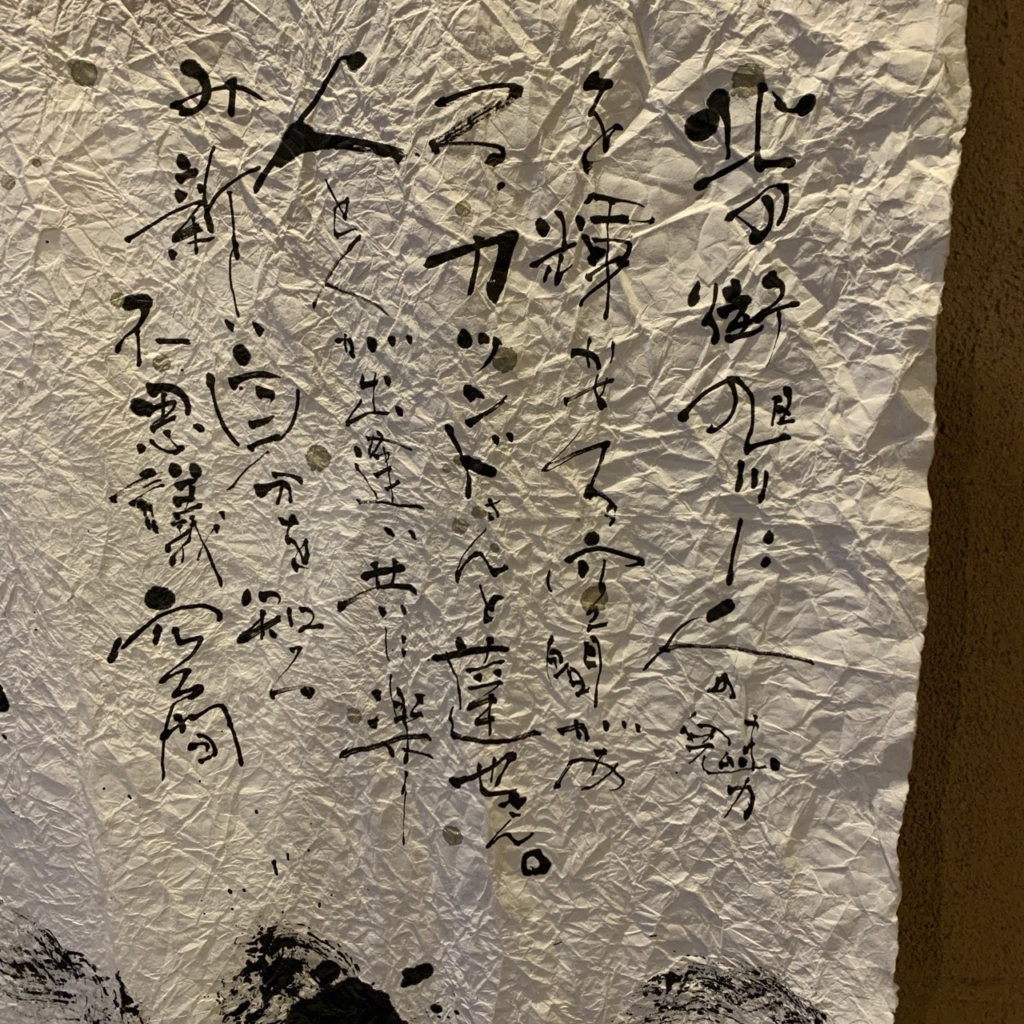 北の街旭川に人の魅力
を輝かせる空間があ
る.カツンドさんと蓮世さん。
人と人が出逢い共に楽し
み新しい自分を知る
不思議空間